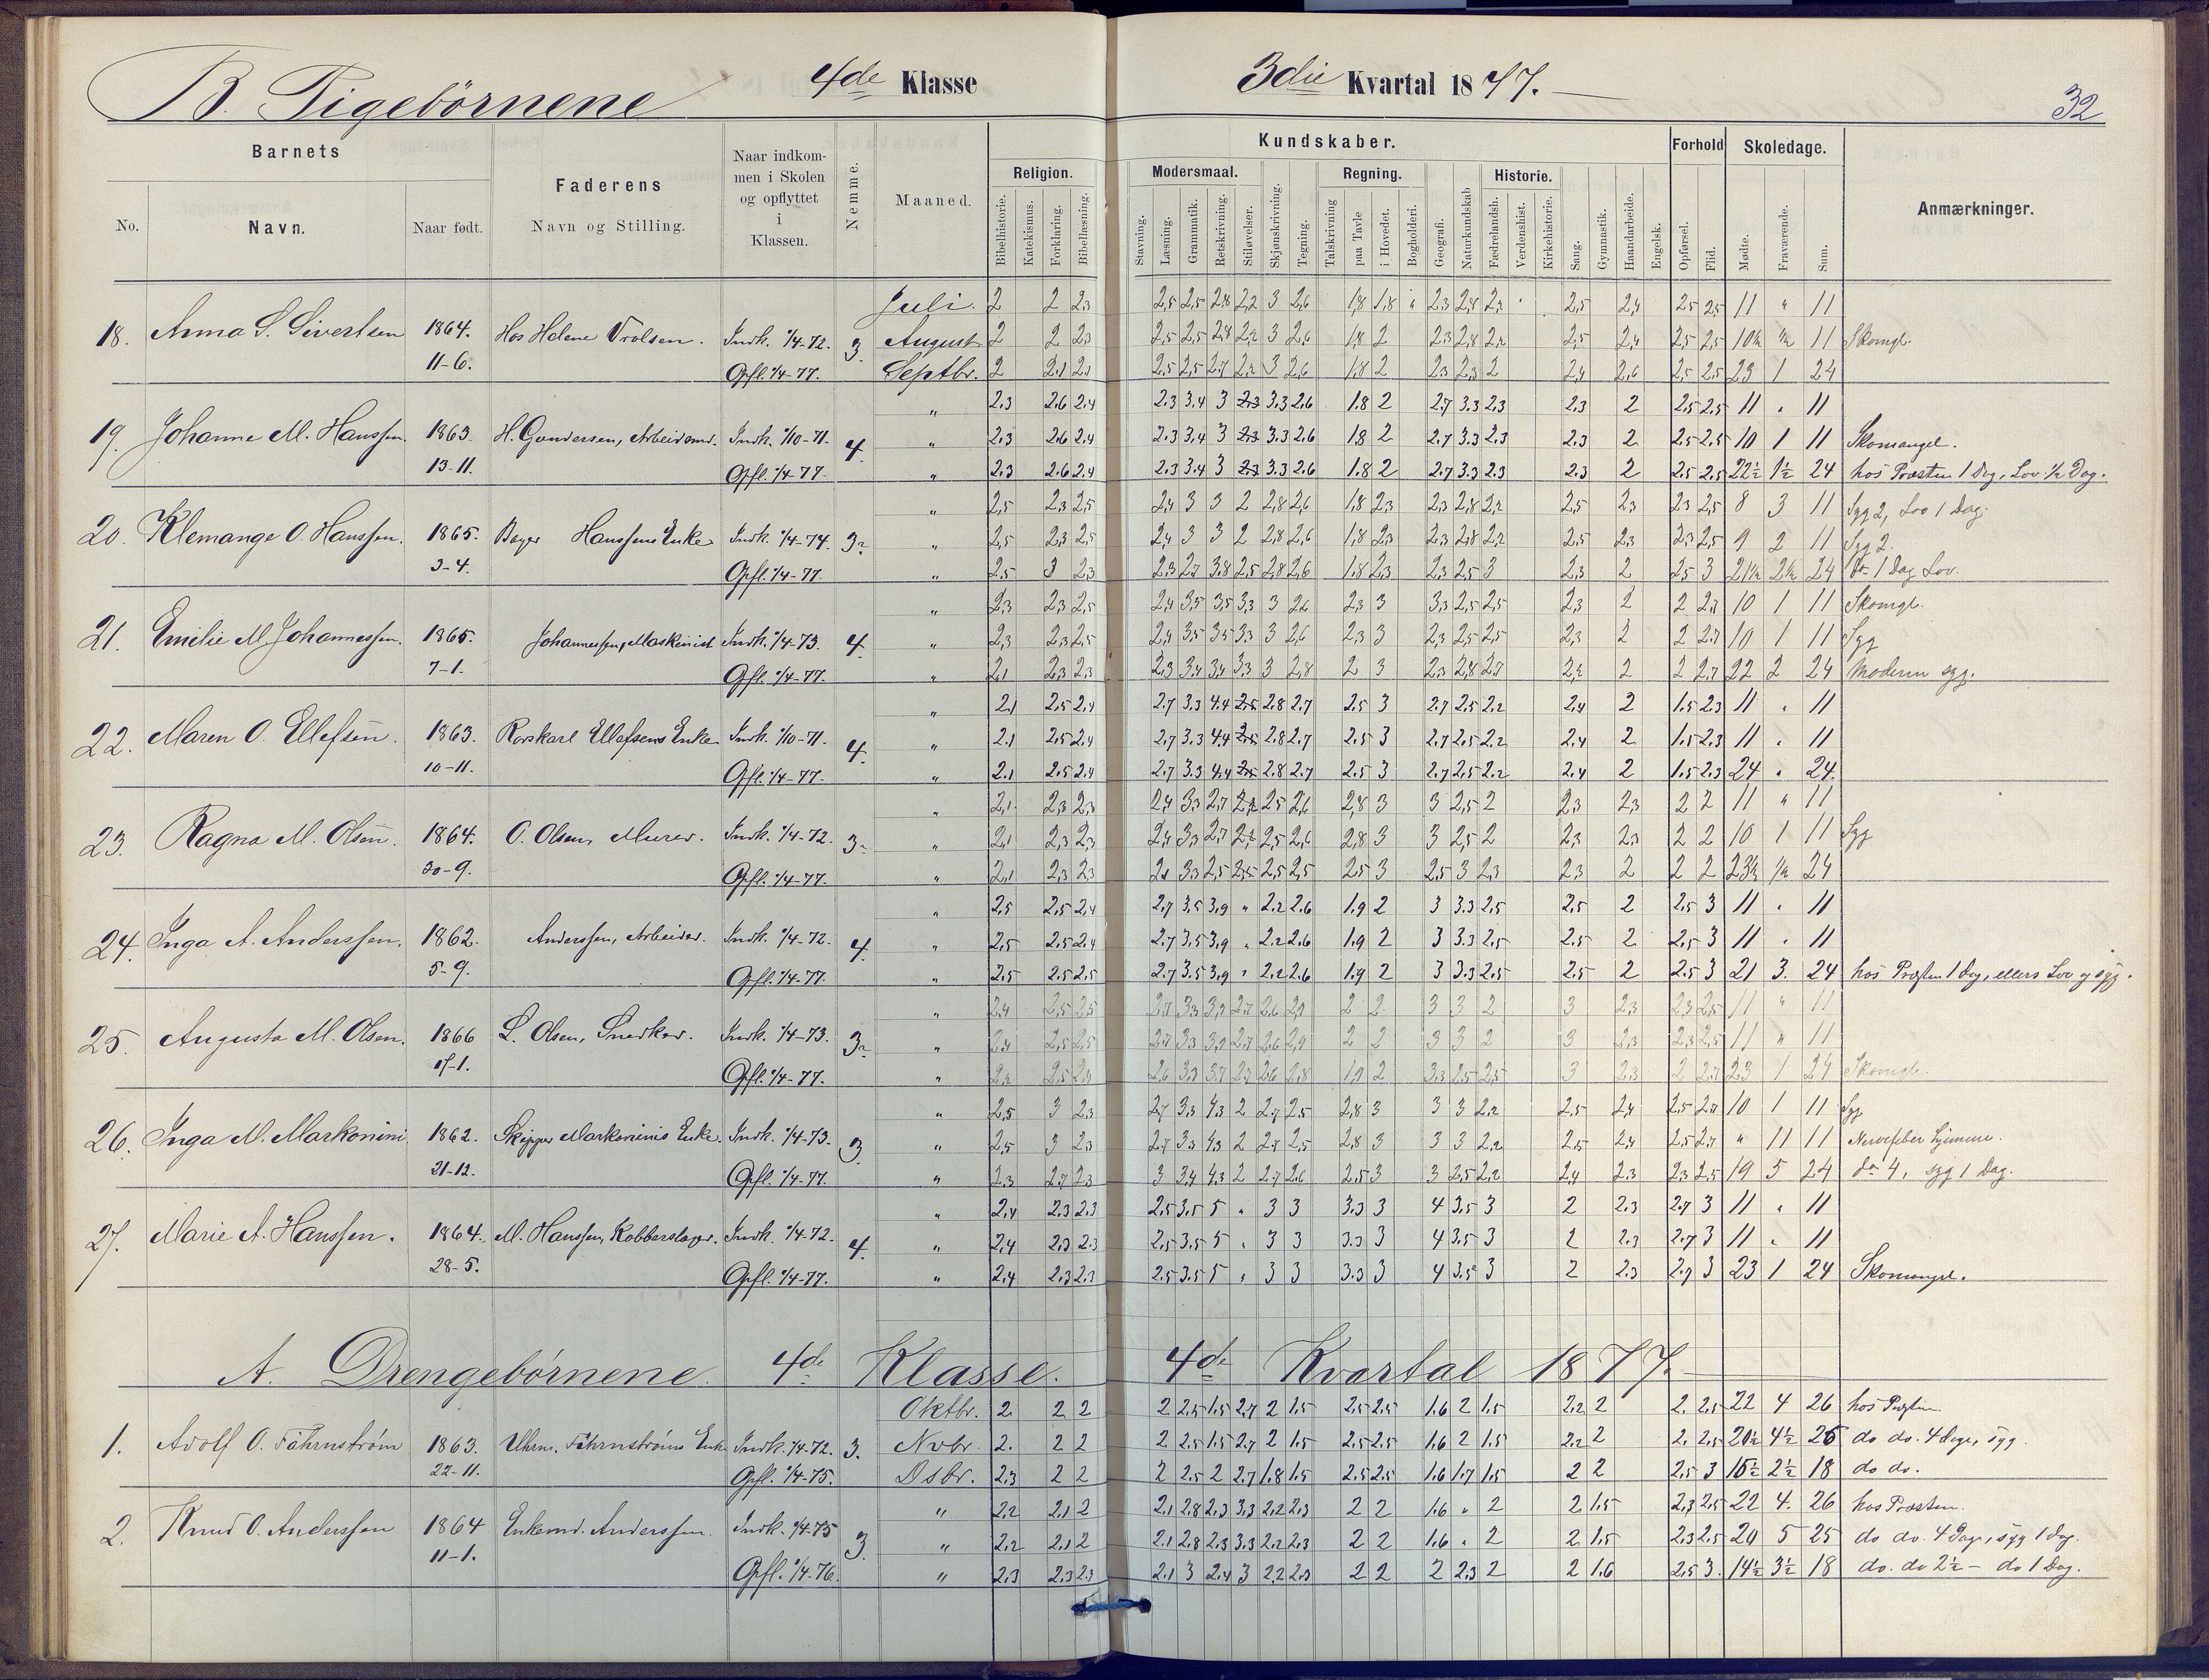 B. Pigebörnene 4de Klasse 3die Kvartal 1877.
32
Barnets
No. Navn. Naar født.
Faderens
Navn og Stilling.
Naar indkommen i Skolen og opflyttet i Klassen.
Nemme.
Maaned.
Kundskaber.
Religion.
Bibelhistorie. Katekismus. Forklaring. Bibellæsning.
Modersmaal.
Stavning. Læsning. Grammatik. Retskrivning. Stiløvelser.
Skjønskrivning. Tegning.
Regning.
Talskrivning paa Tavle i Hovedet. Bogholderi.
Geografi. Naturkundskab
Historie.
Fædrelandsh. Verdenshist. Kirkehistorie.
Sang. Gymnastik. Haandarbeide. Engelsk.
Forhold
Opførsel. Flid.
Skoledage.
Mødte. Fraværende. Sum.
Anmærkninger.
Juli. 2 2 2,3 2,5 2,5 2,8 2,2 3 2,6 1,8 1,8 " 2,3 2,8 2,2 2,5 2,4 2,5 2,5 11 " 11
18. Anna S. Sivertsen 1864. Hos Helene Trolsen. Indk. 1/4-72. 3. August 2 2 2,3 2,5 2,5 2,8 2,2 3 2,6 1,8 2 2,3 2,8 2,2 2,5 2,4 2,5 2,5 10½ ½ 11 Skomgl.
11-6. Opfl. 1/4-77. Septbr. 2 2,1 2,1 2,5 2,5 2,7 2,2 3 2,6 1,8 2 2,3 2,3 2 2,4 2,6 2,5 2,5 23 1 24
" 2.3 2.6 2.4 2.3 3.4 3 2.3 3.3 2.6 1.8 2 2.7 3.3 2.3 2.3 2 2.5 2.5 11 " 11
19. Johanne M. Hanssen. 1863. H. Gundersen, Arbeidsmd. Indk. 1/10-71. 4. " 2.3 2.6 2.4 2.3 3.4 3 2.3 3.3 2.6 1.8 2 2.7 3.3 2.3 2.3 2 2.5 2.5 10 1 11 Skomangel.
13-11. Opfl. 1/4-77. " 2.3 2.6 2.4 2.3 3.4 3 2.3 3.3 2.6 1.8 2 2.7 3.3 2.3 2.3 2 2.5 2.5 22½ 1½ 24 hos Præsten 1 Dag, Lov ½ Dag.
" 2,5 2,3 2,5 2,4 3 3 2 2,8 2,6 1,8 2,3 2,3 2,8 2,2 2,5 2,3 2,3 2,5 8 3 11 Syg 2, Lov 1 Dag.
20. Klemange O. Hanssen. 1865. Bager Hanssens Enke Indk. 1/4-74. 3 " 2,5 2,3 2,5 2,4 3 3 2 2,8 2,6 1,8 2,3 2,3 2,8 2,2 2,5 2,3 2,3 2,5 9 2 11 Syg 2.
3-4. Opfl. 1/4-77. " 2,5 3 2,3 2,3 2,7 3,8 2,5 2,8 2,6 1,8 2,3 2,3 2,5 3 2,3 2 2,5 3 21½ 2½ 24 do 1 Dag Lov.
" 2,3 2,3 2,5 2,4 3,5 3,5 3,3 3 2,6 2,3 3 3,3 2,5 2,5 2,3 2 2 2,7 10 1 11 Skomgl.
21. Emilie M. Johannessen. 1865. Johannessen, Maskinist Indk. 1/4-73. 4. " 2,3 2,3 2,5 2,4 3,5 3,5 3,3 3 2,6 2,3 3 2,3 2,5 2,5 2,3 2 2 2,7 10 1 11 Syg
7-1. Opfl. 1/4-77. " 2,1 2,3 2,3 2,3 3,4 3,4 3,3 3 2,8 2 3 2,3 2,8 2,7 2,2 2 2 2,7 22 2 24 Moderen syg.
" 2.1 2.5 2.4 2.7 3.3 4.4 2.5 2.8 2.7 2.5 3 2.7 2.5 2.2 2.4 2 1.5 2.3 11 " 11
22. Maren O. Ellefsen. 1863. Rorskarl Ellefsens Enke Indk. 1/10-71. 4. " 2.1 2.5 2.4 2.7 3.3 4.4 2.5 2.8 2.7 2.5 3 2.7 2.5 2.2 2.4 2 1.5 2.3 11 " 11
10-11. Opfl. 1/4-77. " 2.1 2.5 2.4 2.7 3.3 4.4 2.5 2.8 2.7 2.5 3 2.7 2.5 2.2 2.4 2 1.5 2.3 24 " 24.
" 2,1 2,3 2,3 2,4 3,3 2,7 2,2 2,5 2,6 2,8 3 3 2,5 2 2,3 2,3 2 2 11 " 11
23. Ragna M. Olsen. 1864. O. Olsen, Murer. Indk. 1/4-72. 3 " 2,1 2,3 2,3 2,4 3,3 2,7 2,2 2,5 2,6 2,8 3 3 2,5 2 2,3 2,3 2 2 10 1 11 Syg
30-9. Opfl. 1/4-77. " 2,1 2,3 2,3 2,1 3,3 2,5 2,5 2,5 2,5 2,5 3 2,5 3 2,3 2,3 2 2 2 23½ ½ 24
" 2,5 2,5 2,4 2.7 3.5 3.9 " 2.2 2.6 1.9 2 3 3.3 2.5 2.5 2 2.5 3 11 " 11
24. Inga A. Anderssen. 1862. Anderssen, Arbeider. Indk. 1/4-72. 4. " 2.5 2.5 2.4 2.7 3.5 3.9 " 2.2 2.6 1.9 2 3 3.3 2.5 2.5 2 2.5 3 11 " 11
5-9. Opfl. 1/4-77. " 2.5 2.5 2.5 2.7 3.5 3.9 " 2.2 2.6 1.9 2 3 3.3 2.5 2.5 2 2.5 3 21 3. 24 hos Præsten 1 Dag, ellers Lov og syg.
" 2,4 2,5 2,5 2,7 3,3 3,9 2,7 2,6 2,9 2 2 3 3 2 3 2,3 2,3 2,5 11 " 11
25. Augusta M. Olsen. 1866 L. Olsen, Snedker. Indk. 1/4-73. 3 " 2,4 2,5 2,5 2,7 3,3 3,9 2,7 2,6 2,9 2 2 3 3 2 3 2,3 2,3 2,5 11 " 11
Opfl. 1/4-77. " 3 2,3 2 2,7 23 1 24 Skomgl.
" 2,5 3 2,3 2,7 3,3 4,3 2 2,7 2,5 2,8 3 3 3 2,2 2,5 2,4 2,5 2,7 10 1 11 Syg
26. Inga M. Markonini 1862. Skipper Markoninis Enke. Indk. 1/4-73. 3 " 2,5 3 2,3 2,7 3,3 4,3 2 2,7 2,5 2,8 3 3 3 2,2 2,5 2,4 2,5 2,7 " 11 11 Nervefeber hjemme.
21-12. Opfl. 1/4-77. " 2,3 2,7 2,3 3 3,4 4,3 2 2,7 2,6 2,5 3 3 2,5 2,2 2,4 2,3 2,3 2,5 19 5 24 do 4, syg 1 Dag.
" 2.4 2.3 2.3 2.5 3.5 5 " 3 3 3.3 3 4 3.5 3 2 2.3 2.7 3 11 " 11
27. Marie A. Hanssen. 1864. M. Hanssen, Kobberslager. Indk. 1/4-72. 4. " 2.4 2.3 2.3 2.5 3.5 5 " 3 3 3.3 3 4 3.5 3 2 2.3 2.7 3 11 " 11
28-5. Opfl. 1/4-77. " 2.4 2.3 2.3 2.5 3.5 5 " 3 3 3.3 3 4 3.5 3 2 2.3 2.7 3 23 1 24 Skomangel.
A. Drengebörnene. 4de Klasse. 4de Kvartal 1877.
Oktbr. 2 2 2 2 2.5 1.5 2.7 2 1.5 2.5 2.5 1.6 2 1.5 2.2 2 2. 2.5 22 4 26 hos Præsten.
1. Adolf O. Fåhrnström 1863. Uhrm. Fåhrnströms Enke Indk. 1/4-72. 3. Nvbr. 2. 2 2 2 2.5 1.5 2.7 2 1.5 2.5 2.5 1.6 2 1.5 2.2 2 2. 2.5 20½ 4½ 25 do do. 4 Dage, syg.
22-11. Opfl. 1/4-75. Dsbr. 2.3 2 2 2 2.5 2 2.7 1.8 1.5 2.5 2.5 1.6 1.7 1.5 2 2 2.5 3 15½ 2½ 18 do do.
" 2.2 2.1 2 2.1 2.8 2.3 3.3 2.2 2.3 2 2 1.6 " 2 2 1.5 2.3 2.5 22 4. 26 hos Præsten.
2. Knud O. Anderssen 1864 Enkemd. Anderssen. Indk. 1/4-75 3. " 2.2 2.1 2 2.1 2.8 2.3 3.3 2.2 2.3 2 2 1.6 " 2 2 1.5 2.3 2.5 20 5 25 do do. 4 Dage, syg 1 Dag.
11-1. Opfl. 1/4-76. " 2.3 2.3 2.3 2.1 3 2.4 3 2.2 2.3 2 2 2 2.3 2 2 1.6 2.5 3. 14½ 3½ 18 do. do 2½ - do 1 Dag.